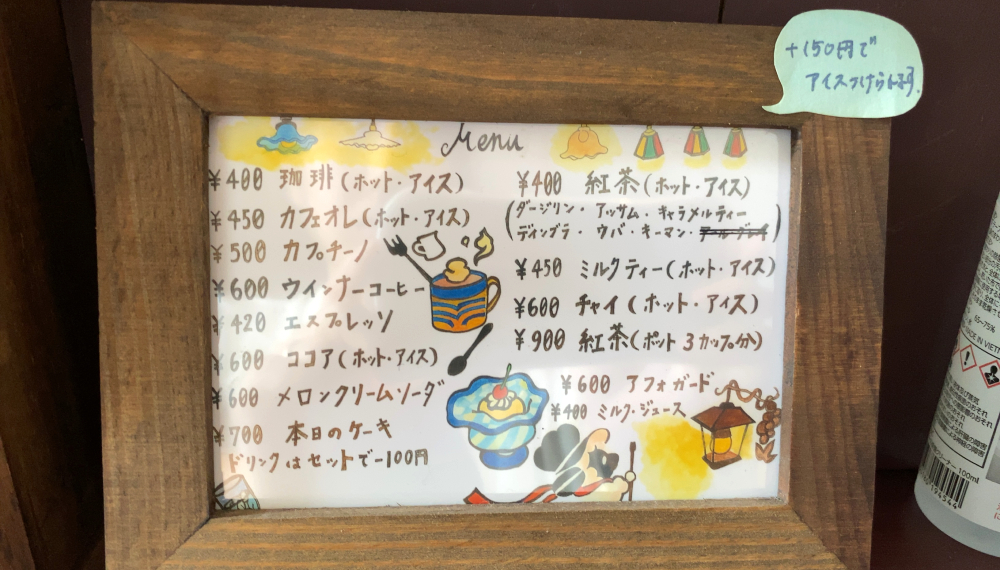 +150円で
アイスつけられます。
Menu
¥400 珈琲(ホット・アイス)
¥450 カフェオレ(ホット・アイス)
¥500 カプチーノ
¥600 ウインナーコーヒー
¥420 エスプレッソ
¥600 ココア(ホット・アイス)
¥600 メロンクリームソーダ
¥700 本日のケーキ
ドリンクはセットで-100円
¥400 紅茶(ホット・アイス)
(ダージリン・アッサム・キャラメルティー
ディンブラ・ウバ・キーマン・アールグレイ)
¥450 ミルクティー(ホット・アイス)
¥600 チャイ(ホット・アイス)
¥900 紅茶(ポット3カップ分)
¥600 アフォガード
¥400 ミルク・ジュース
65~75%
MADE IN VIET
100ml